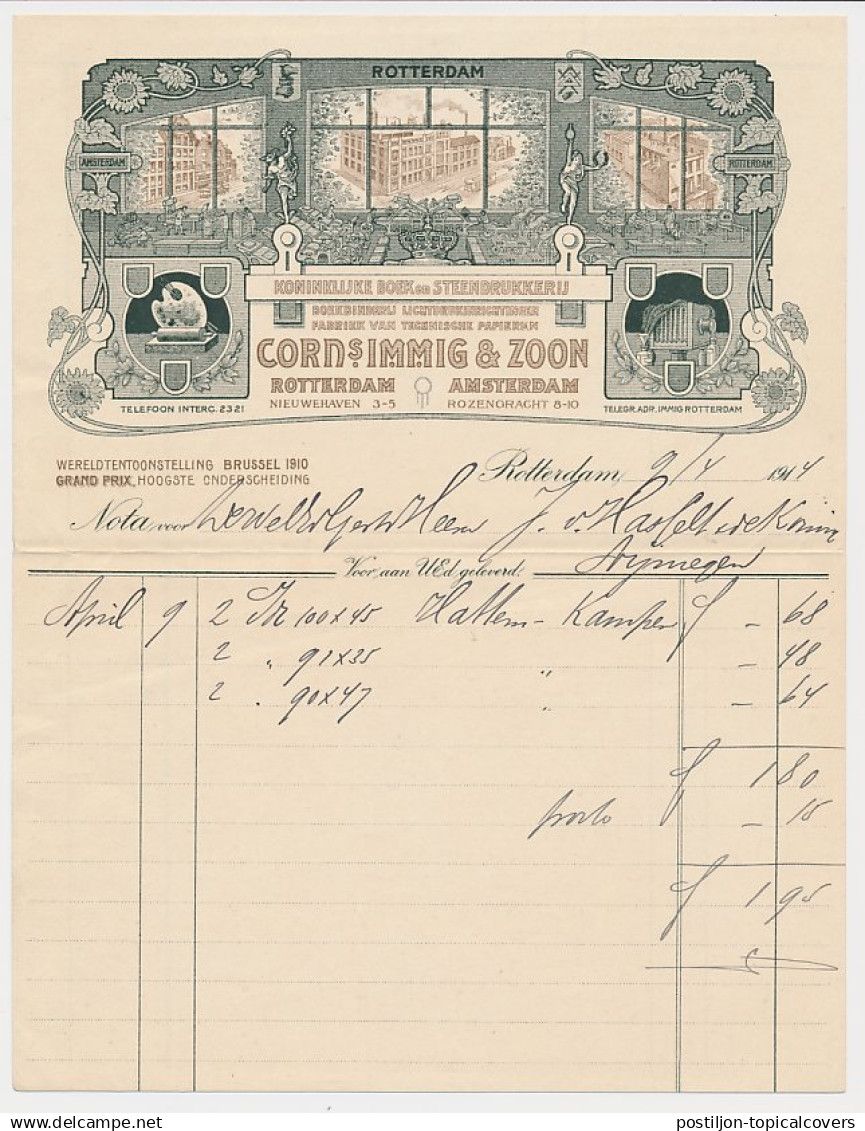 ROTTERDAM
AMSTERDAM
ROTTERDAM
KONINKLIJKE BOEK en STEENDRUKKERIJ
BOEKBINDERIJ LICHTDRUKINRICHTINGEN
FABRIEK VAN TECHNISCHE PAPIEREN
CORNS IMMIG & ZOON
ROTTERDAM AMSTERDAM
NIEUWEHAVEN 3-5 ROZENGRACHT 8-10
TELEFOON INTERC. 2321
TELEGR. ADR. IMMIG ROTTERDAM
WERELDTENTOONSTELLING BRUSSEL 1910
GRAND PRIX, HOOGSTE ONDERSCHEIDING
Rotterdam, 9/4 1914
Nota voor Heer J. v. Hasselt
Nijmegen
Voor aan UEd. geleverd.
April 9 2 100x45 Hattem - Kampen f - 68
2 " 91x35 " - 48
2 " 90x47 " - 64
f 1 80
porto - 15
f 1 95
postiljon-topicalcovers